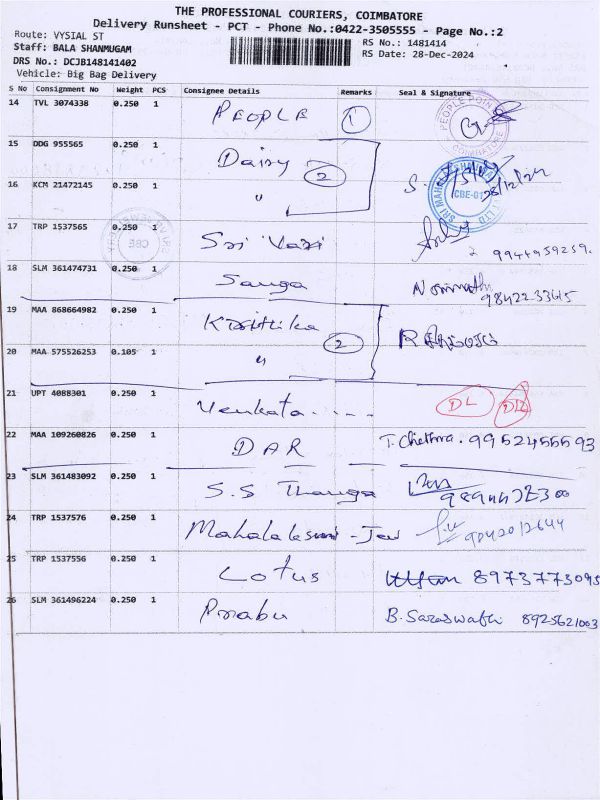 THE PROFESSIONAL COURIERS, COIMBATORE
Delivery Runsheet - PCT - Phone No.:0422-3505555 - Page No.:2
Route: VYSIAL ST
Staff: BALA SHANMUGAM
DRS No.: DCJB148141402
Vehicle: Big Bag Delivery
RS No.: 1481414
RS Date: 28-Dec-2024
S No Consignment No Weight PCS Consignee Details Remarks Seal & Signature
14 TVL 3074338 0.250 1 PEOPLE 1
PEOPLE POINT COIMBATORE
15 DDG 955565 0.250 1 Daisy 2
16 KCM 21472145 0.250 1 "
S. 28/12/24
CBE-01
17 TRP 1537565 0.250 1 Sri Vari
CBE
18 SLM 361474731 0.250 1 Sanga 9842233615
19 MAA 868664982 0.250 1 Krithika 2
20 MAA 575526253 0.105 1 "
21 UPT 4088301 0.250 1 Venkata..... DL DL
22 MAA 109260826 0.250 1 DAR T. Chethna. 9952455593
23 SLM 361483092 0.250 1 S.S Thanga
24 TRP 1537576 0.250 1 Mahalaksmi - Jew 9842012644
25 TRP 1537556 0.250 1 Lotus 8973773095
26 SLM 361496224 0.250 1 Prabu B. Saraswathi 8925621003